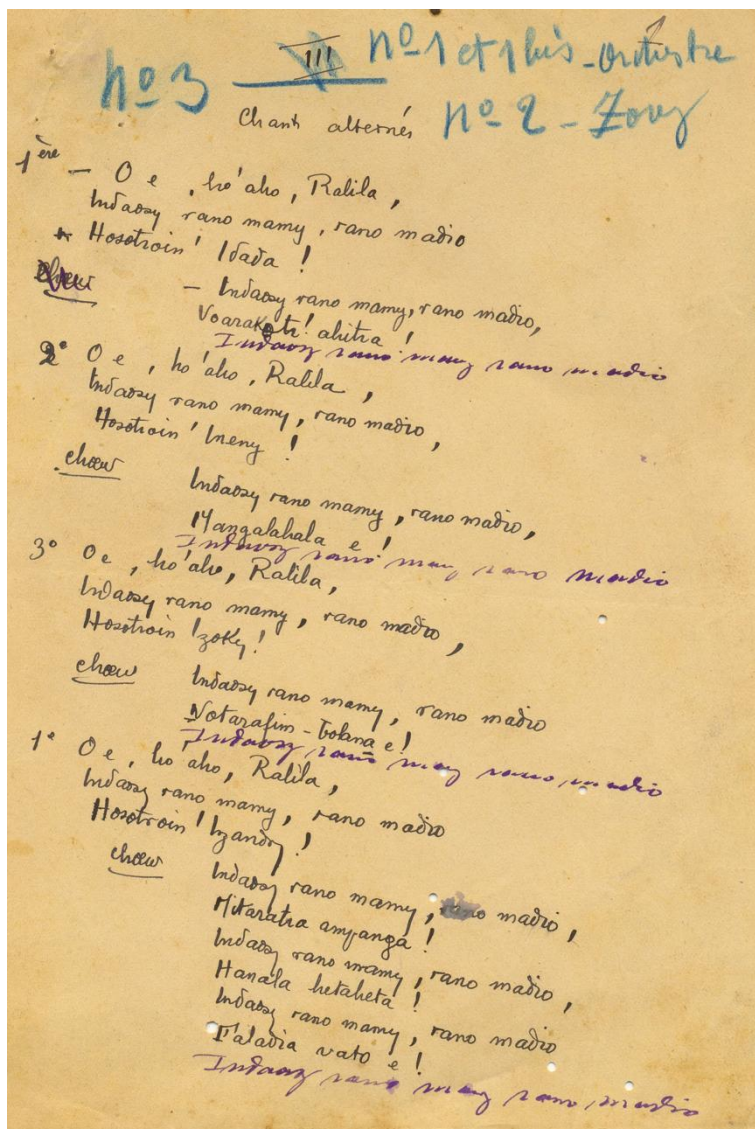 nº 3 III nº 1 et 1 bis - Orchestre
Chants alternés nº 2 - Zouz
1ère - O e, ho' aho, Ralila,
Indaosy rano mamy, rano madio
Hosotroin' Idada !
Chœur
- Indaosy rano mamy, rano madio,
Voarakotr' ahitra !
Indaosy rano mamy rano madio
2° O e, ho' aho, Ralila,
Indaosy rano mamy, rano madio,
Hosotroin' Ineny !
chœur
Indaosy rano mamy, rano madio,
Mangalahala e !
Indaosy rano mamy rano madio
3° O e, ho' aho, Ralila,
Indaosy rano mamy, rano madio,
Hosotroin' Izoky !
chœur
Indaosy rano mamy, rano madio
Notarafim-bolana e !
Indaosy rano mamy rano madio
1° O e, ho' aho, Ralila,
Indaosy rano mamy, rano madio
Hosotroin' Izandry !
chœur
Indaosy rano mamy, rano madio,
Mitaratra ampanga !
Indaosy rano mamy, rano madio,
Hanala hetaheta !
Indaosy rano mamy, rano madio
Faladia vato e !
Indaosy rano mamy rano madio